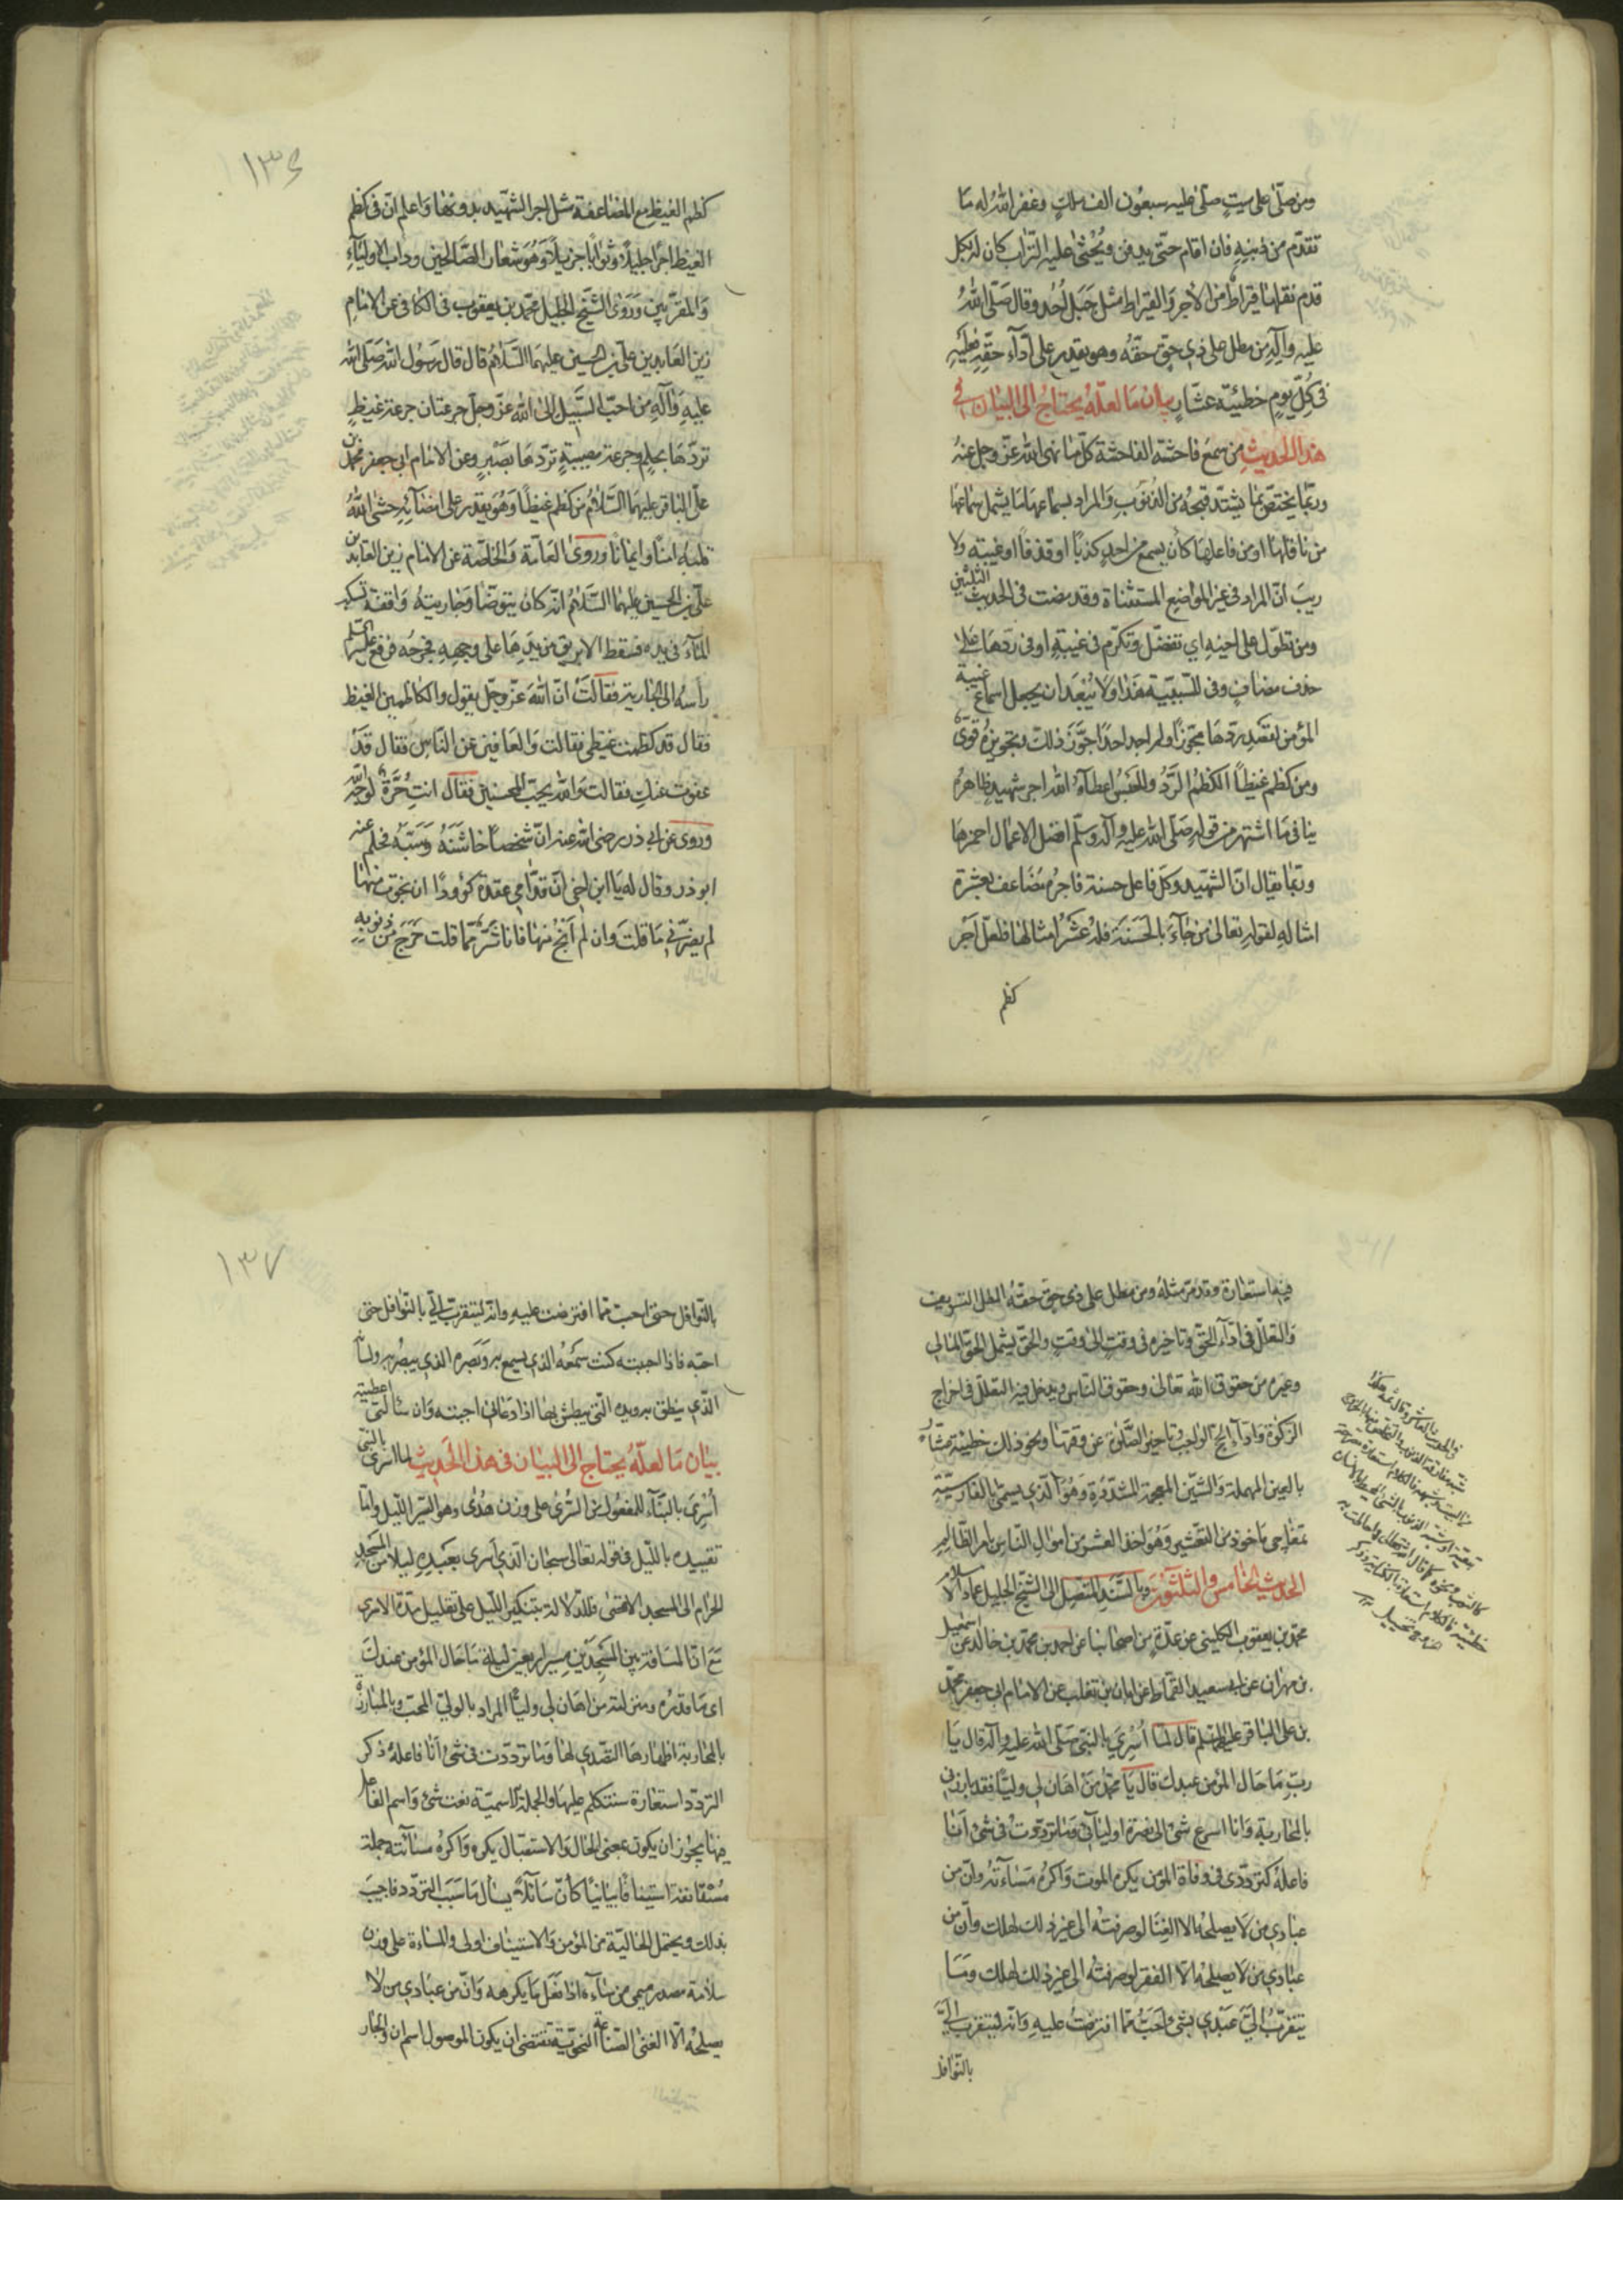 ومن صلّى على ميت صلّى عليه سبعون الف ملك وغفر الله له ما
تقدّم من ذنبه فان اقام حتّى يدفن ويُحثى عليه التراب كان له بكل
قدم نقلها قيراط من الأجر والقيراط مثل جبل أُحد وقال صلّى اللهُ
عليه وآله من مطل على ذي حق حقّه وهو يقدر على أدآء حقّه فعليه
في كلّ يوم خطيئة عشّار بيان ما لعلّه يحتاج الى البيان في
هذا الحديث من سمع فاحشة الفاحشة كلّ ما نهى الله عزّ وجل عنه
وربّما يختصّ بما يشتدّ قبحه من الذنوب والمراد بسماعها ما يشمل سماعها
من ناقلها او من فاعلها كأن يسمع من احد كذباً او قذفاً او غيبة ولا
ريب انّ المراد في غير المواضع المستثناة وقد مضت في الحديث الثلثين
ومن تطوّل على اخيه اي تفضّل وتكرّم في غيبة او في ردّها على
حذف مضاف وفي للسببيّة هذا ولا يبعد ان يجعل اسماع غيبة
المؤمن لقصد ردّها مجوّزاً ولم اجد احداً جوّز ذلك وتجويزه قويّ
ومن كظم غيظاً الكظم الرَّدُّ والحَبسُ اعطاه الله اجر شهيد ظاهره
ينافي ما اشتهر من قوله صَلّى الله عليه وآله وسلّم افضل الاعمال احمزها
وربّما يقال انّ الشهيد وكل فاعل حسنة فاجره مضاعف بعشرة
امثاله لقوله تعالى من جآء بالحسنة فله عشر امثالها فلعلّ اجر
كظم
١٣٦
كظم الغيظ مع المضاعفة مثل اجر الشهيد بدونها واعلم انّ في كظم
الغيظ اجراً جليلاً وثواباً جزيلاً وهو شعار الصّالحين وداب الاوليآء
والمقرّبين وروى الشّيخ الجليل محمّد بن يعقوب في الكافي عن الامام
زين العابدين علي بن الحسين عليهما السّلام قال قال رسول الله صَلّى الله
عليه وآله من احبّ السّبيل الى الله عزّ وجلّ جرعتان جرعة غيظ
تردّها بحلم وجرعة مصيبة تردّها بصَبْر وعن الامام ابي جعفر محمّد بن
علي الباقر عليهما السّلام من كظم غيظاً وهو يقدر على امضآئه حشى الله
قلبه امناً وايماناً وروى العامّة والخاصّة عن الامام زين العابدين
علي بن الحسين عليهما السّلام انّه كان يتوضّأ وجارية واقفة تسكب
المآء في يده فسقط الابريق من يدها على وجهه فجرحه فرفع عليه السلم
رأسه الى الجارية فقالت انّ الله عزّ وجلّ يقول والكاظمين الغيظ
فقال قد كظمت غيظي فقالت والعافين عن النّاس فقال قد
عفوت عنك فقالت والله يحبّ المحسنين فقال انتِ حُرَّةٌ لوجه الله
وروى عن ابي ذر رضي الله عنه انّ شخصاً خاشنه وسَبّه فحلم عنه
ابو ذر وقال له يا ابن اخي انّ قدّامي عقبة كؤوداً ان نجوت منها
لم يضرّني ما قلت وان لم اَنجُ منها فانا شرّ ممّا قلت خرج من ذنوبه
فيه استعارة وقد مرّ مثله ومن مطل على ذي حق حقّه المطل التسويف
والتعلّل في ادآء الحق وتاخيره من وقت الى وقت والحق يشمل الحق المالي
وغيره من حقوق الله تعالى وحقوق الناس ويدخل فيه التعلل في اخراج
الزكوة وادآء الحج الواجب وتاخير الصّلوة عن وقتها ونحو ذلك خطيئة عشّار
بالعين المهملة والشّين المعجمة المشدّدة وهو الذي يسمّى بالفارسيّة
تمغاجي ماخوذ من التعشير وهو اخذ العشر من اموال النّاس بامر الظالم
الحديث الخامس والثلثون وبالسّند المتّصل الى الشّيخ الجليل عماد الاسلام
محمّد بن يعقوب الكليني عن عدّة من اصحابنا عن احمد بن محمد بن خالد عن اسمعيل
بن مهران عن ابي سعيد القمّاط عن ابان بن تغلب عن الامام ابي جعفر محمّد
بن علي الباقر عليهما السّلم قال لمّا أُسري بالنّبي صَلّى الله عليه وآله قال يا
ربّ ما حال المؤمن عندك قال يا محمّد من اهان لي وليّاً فقد بارزني
بالمحاربة وانا اسرع شئ الى نصرة اوليائي وما تردّدت في شئ انا
فاعله كتردّدي في وفاة المؤمن يكره الموت واكره مساءته وانّ من
عبادي من لا يصلحه الا الغنا لو صرفته الى غير ذلك لهلك وانّ من
عبادي من لا يصلحه الّا الفقر لو صرفته الى غير ذلك لهلك وما
يتقرّب اليّ عبدي بشئ احبّ ممّا افترضت عليه وانّه ليتقرّب اليّ
بالنّوافل
١٣٧
بالنّوافل حتّى احب ممّا افترضت عليه وانّه ليتقرب اليّ بالنّوافل حتى
احبّه فاذا احببته كنت سمعه الذي يسمع به وبصره الذي يبصر به ولسانه
الّذي ينطق به ويده الّتي يبطش بها اذا دعاني اجبته وان سألني اعطيته
بيان ما لعلّه يحتاج الى البيان في هذا الحديث لما اسرى بالنبي
أُسْرِيَ بالبنآء للمفعول من السُّرى على وزن هُدى وهو السّير اللّيل وامّا
تقييده باللّيل في قوله تعالى سبحان الّذي اَسرى بعبده ليلاً من المسجد
الحرام الى المسجد الاقصى فللدّلالة بتنكير اللّيل على تقليل مدّة الاسرى
مع انّ المسافة بين المسجدين مسير اربعين ليلة ما حال المؤمن عندك
اي ما قدره ومنزلته من اهان لي وليّاً المراد بالوليّ المحبّ وبالمبارزة
بالمحاربة اظهارها التصدي لها وما تردّدت في شئ انا فاعله ذكر
التردّد استعارة سنتكلم عليها والجملة الاسميّة نعت شئ واسم الفاعل
فيها يجوز ان يكون بمعنى الحال والاستقبال يكره واكره مسائته جملة
مستانفة استينافاً بيانيّاً كأنّ سائلاً يسأل ما سبب التردّد فاجيب
بذلك ويحتمل الحاليّة من المؤمن والاستيناف اولى والمساءة على وزن
سلامة مصدر ميمي من ساءه اذا فعل ما يكرهه وانّ من عبادي من لا
يصلحه الّا الغنى الصّناعة النحويّة تقتضي ان يكون الموصول اسم ان والجار